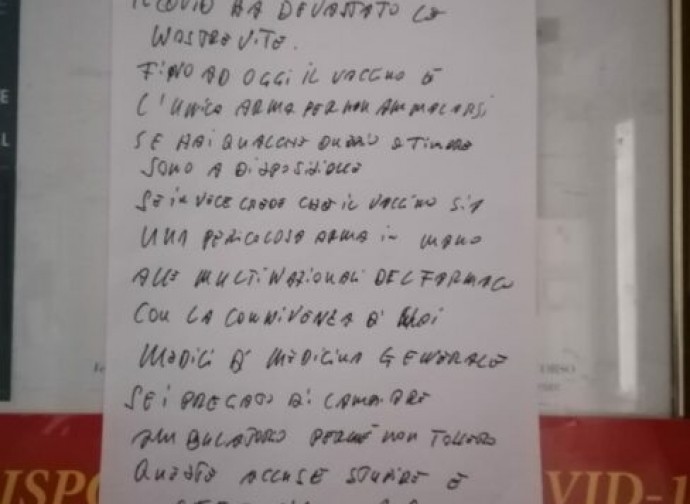 IL COVID HA DEVASTATO LE
NOSTRE VITE.
FINO AD OGGI IL VACCINO È
L'UNICA ARMA PER NON AMMALARSI
SE HAI QUALCHE DUBBIO O TIMORE
SONO A DISPOSIZIONE
SE INVECE CREDE CHE IL VACCINO SIA
UNA PERICOLOSA ARMA IN MANO
ALLE MULTINAZIONALI DEL FARMACO
CON LA CONNIVENZA DI NOI
MEDICI DI MEDICINA GENERALE
SEI PREGATO DI CAMBIARE
AMBULATORIO PERCHÉ NON TOLLERO
QUESTE ACCUSE STUPIDE E
E
L
ISPO
VID-1
ORSO